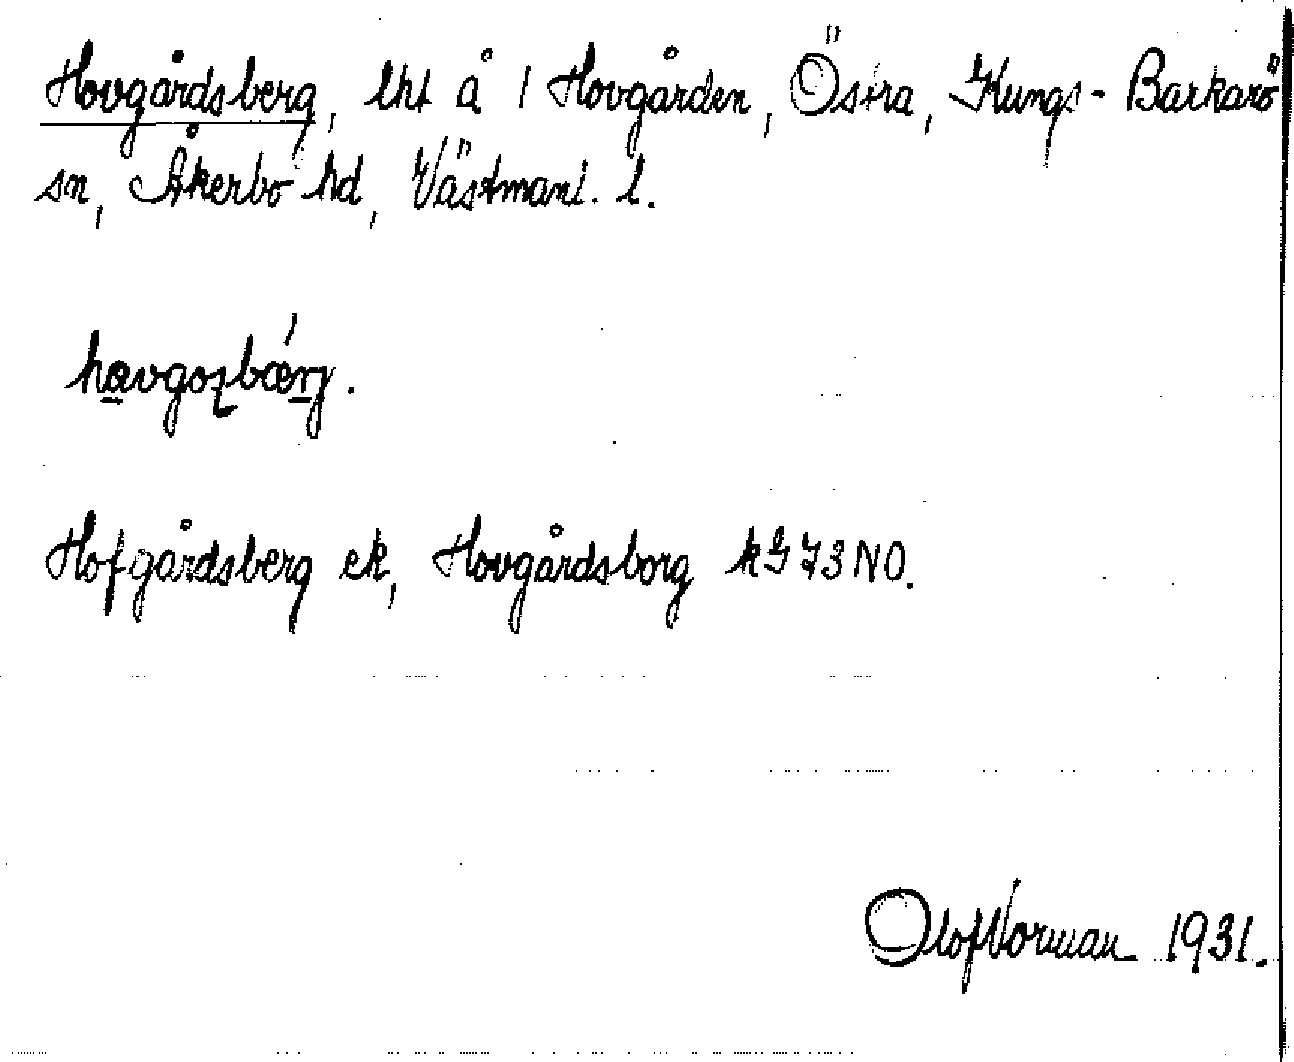 Hovgårdsberg, lht å 1 Hovgården, Östra, Kungs-Barkarö
sn, Åkerbo hd, Västmanl. l.
Hofgårdsberg ek, Hovgårdsborg kG 73 NO.
Olof Norman 1931.